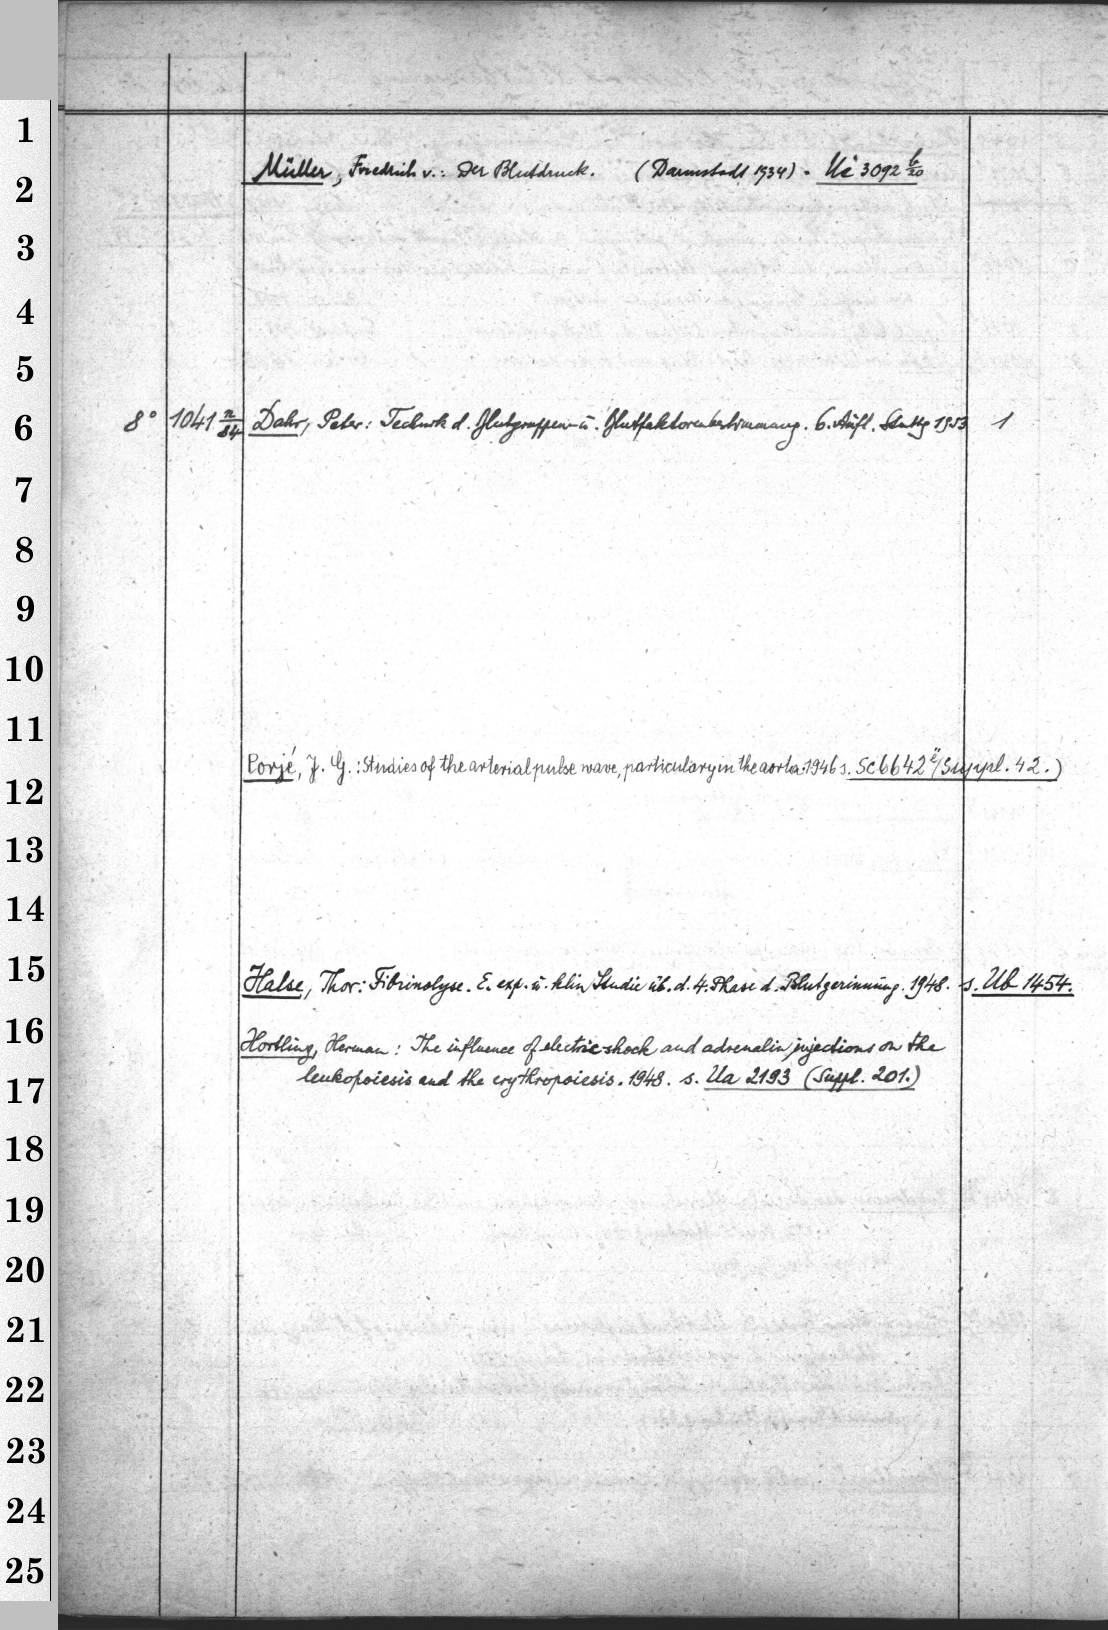 1
2
3
4
5
6
7
8
9
10
11
12
13
14
15
16
17
18
19
20
21
22
23
24
25
Müller, Friedrich v.: Der Blutdruck. (Darmstadt 1934) . Ui 3092 b/20
8° 1041 n/84 Dahr, Peter: Technik d. Blutgruppen- u. Blutfaktorenbestimmung. 6. Aufl. Stuttg 1953 1
Porjé, J. G.: Studies of the arterial pulse wave, particulary in the aorta. 1946 s. Sc 6642 ë/Suppl. 42.)
Halse, Thor: Fibrinolyse. E. exp. u. klin Studie üb. d. 4. Phase d. Blutgerinnung. 1948. s. Ub 1454.
Hortling, Herman: The influence of electric shock and adrenalin injections on the
leukopoiesis and the erythropoiesis. 1948. s. Ua 2193 (Suppl. 201.)